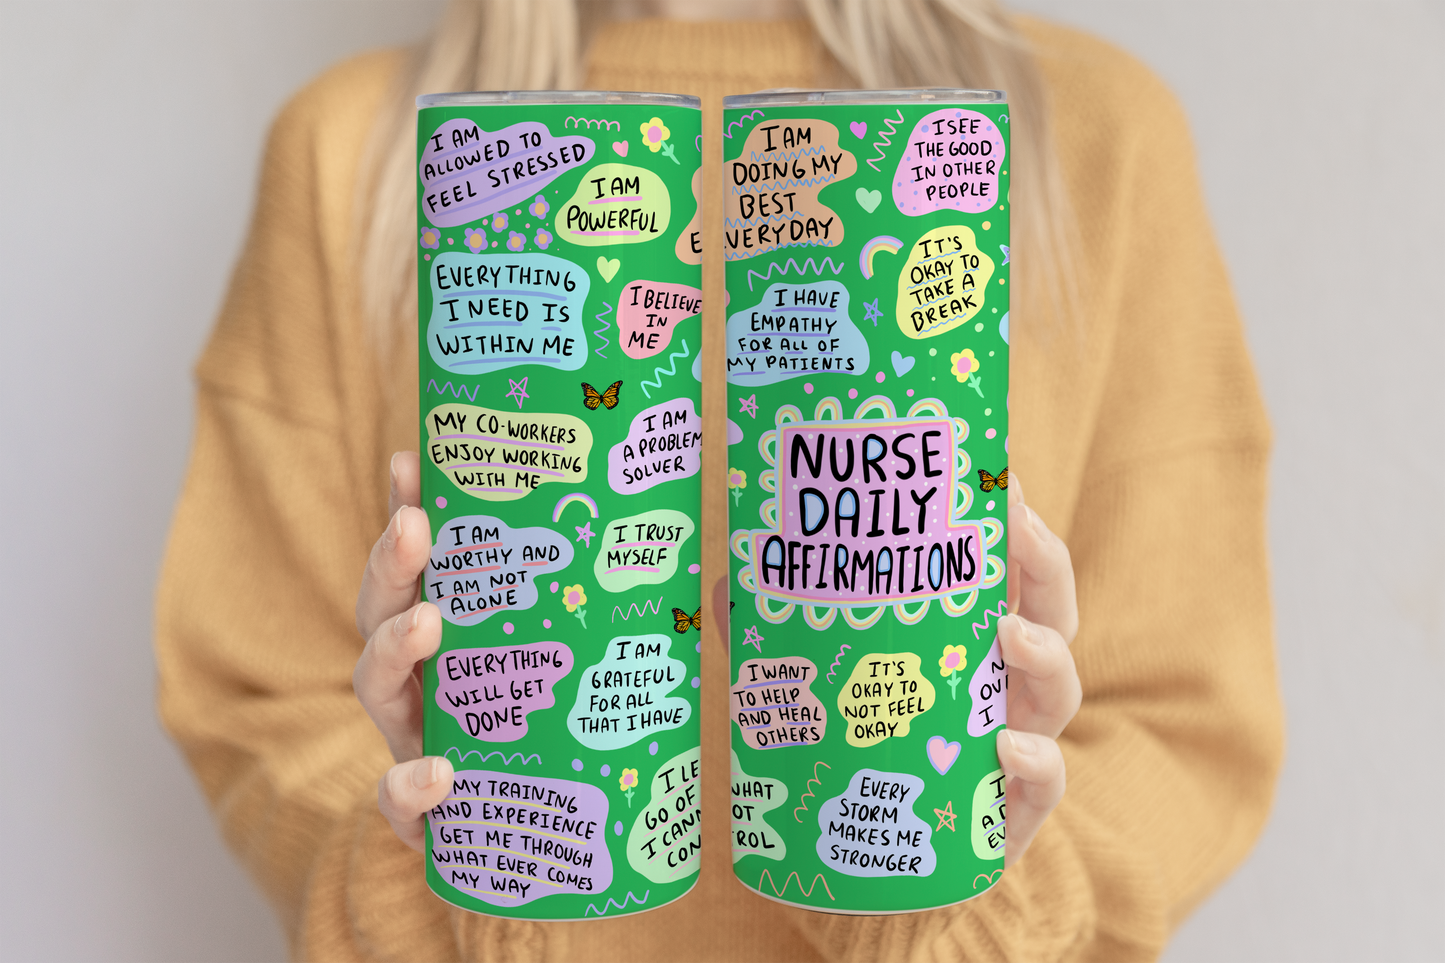 I AM
ALLOWED TO
FEEL STRESSED
I AM
POWERFUL
E
EVERYTHING
I NEED IS
WITHIN ME
I BELIEVE
IN
ME
MY CO-WORKERS
ENJOY WORKING
WITH ME
I AM
A PROBLEM
SOLVER
I AM
WORTHY AND
I AM NOT
ALONE
I TRUST
MYSELF
EVERYTHING
WILL GET
DONE
I AM
GRATEFUL
FOR ALL
THAT I HAVE
MY TRAINING
AND EXPERIENCE
GET ME THROUGH
WHAT EVER COMES
MY WAY
I LE
GO OF
I CANN
CON
I AM
DOING MY
BEST
EVERYDAY
I SEE
THE GOOD
IN OTHER
PEOPLE
I HAVE
EMPATHY
FOR ALL OF
MY PATIENTS
IT'S
OKAY TO
TAKE A
BREAK
NURSE
DAILY
AFFIRMATIONS
I WANT
TO HELP
AND HEAL
OTHERS
IT'S
OKAY TO
NOT FEEL
OKAY
N
OV
I
WHAT
OT
ROL
EVERY
STORM
MAKES ME
STRONGER
I
A
EV